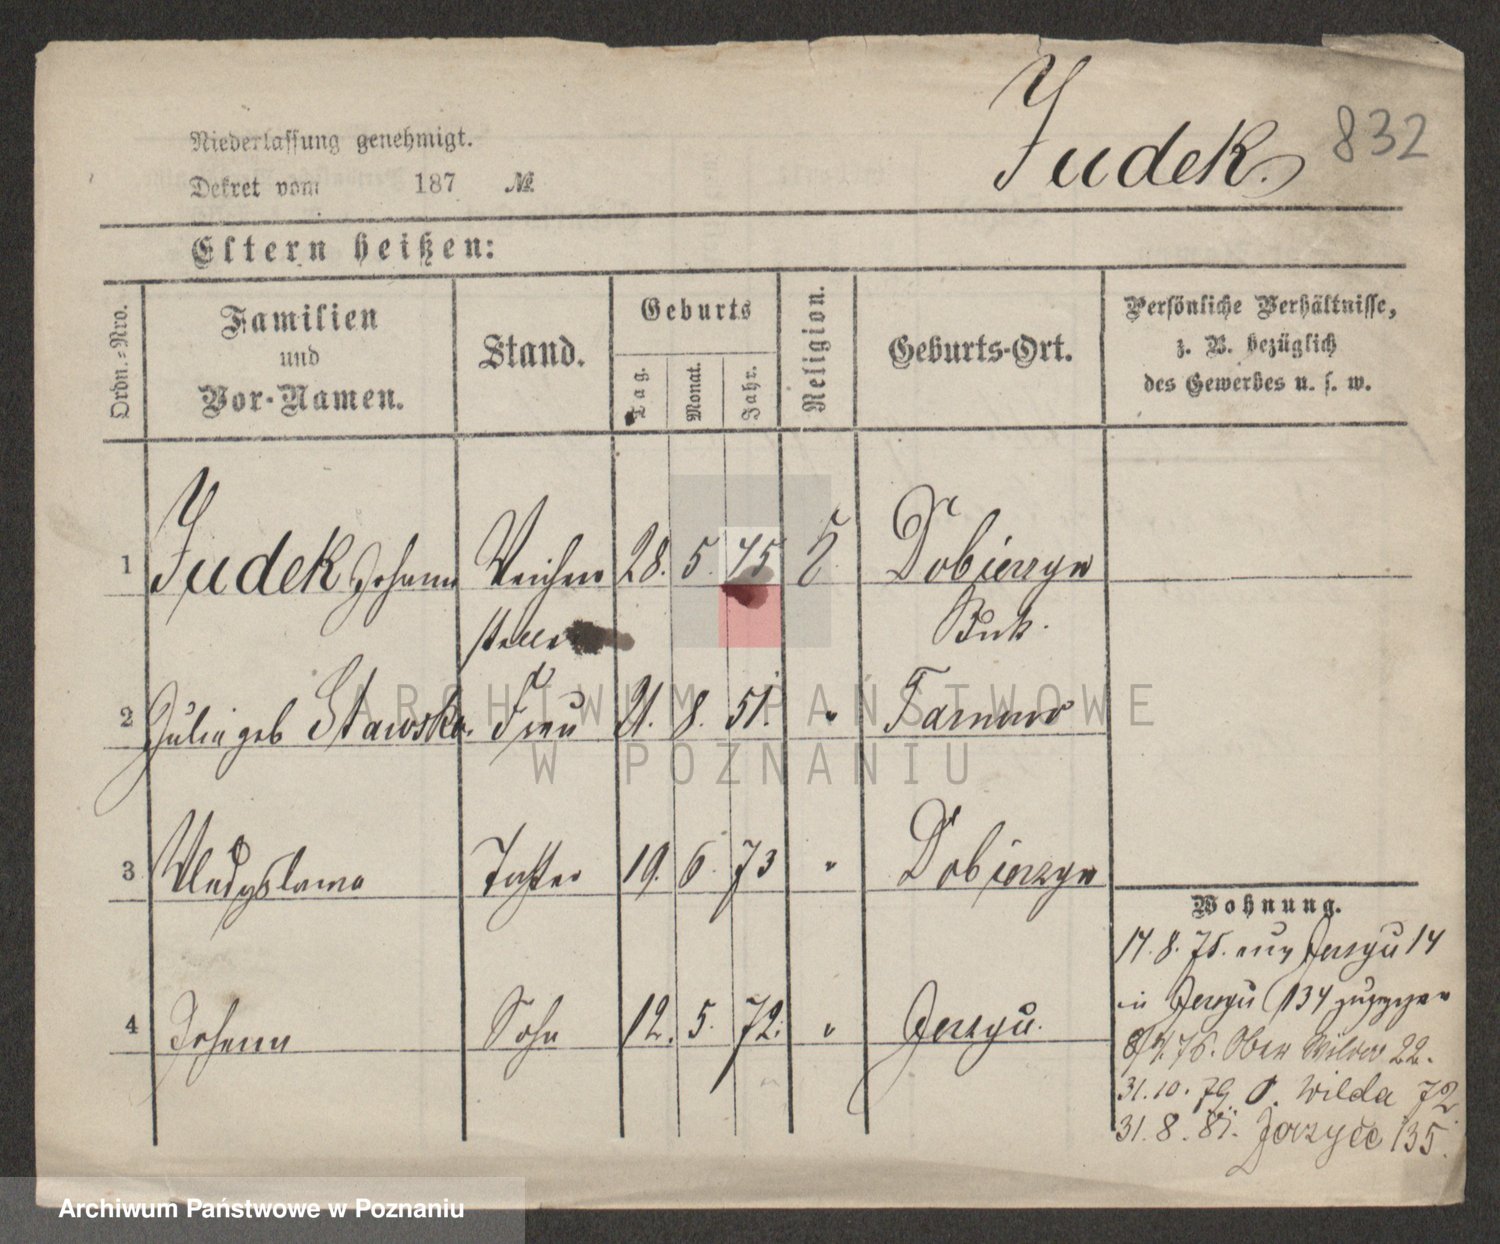 Judek.
832
Niederlassung genehmigt.
Dekret vom 187 №
Eltern heißen:
Ordn.-Nro.
Familien und Vor-Namen.
Stand.
Geburts
Tag. Monat. Jahr.
Religion.
Geburts-Ort.
Persönliche Verhältnisse,
z. B. bezüglich
des Gewerbes u. s. w.
1 Judek Johann Weichen 28. 5. 45 Dobierzyn
steller Buk.
2 Julia geb Stawska. Frau 21. 8. 51. " Tarnowo
3 Wladyslawa Tochter 19. 6. 73 " Dobierzyn
4 Johann Sohn 12. 5. 72. " Jerzyce.
Wohnung.
17. 8. 75. aus Jerzyce 14
in Jerzyce 134 zugezogen
8/4. 76. Ober Wilda 22.
31. 10. 79 O. Wilda 72
31. 8. 81. Jerzyce 135.
ARCHIWUM PAŃSTWOWE
W POZNANIU
Archiwum Państwowe w Poznaniu